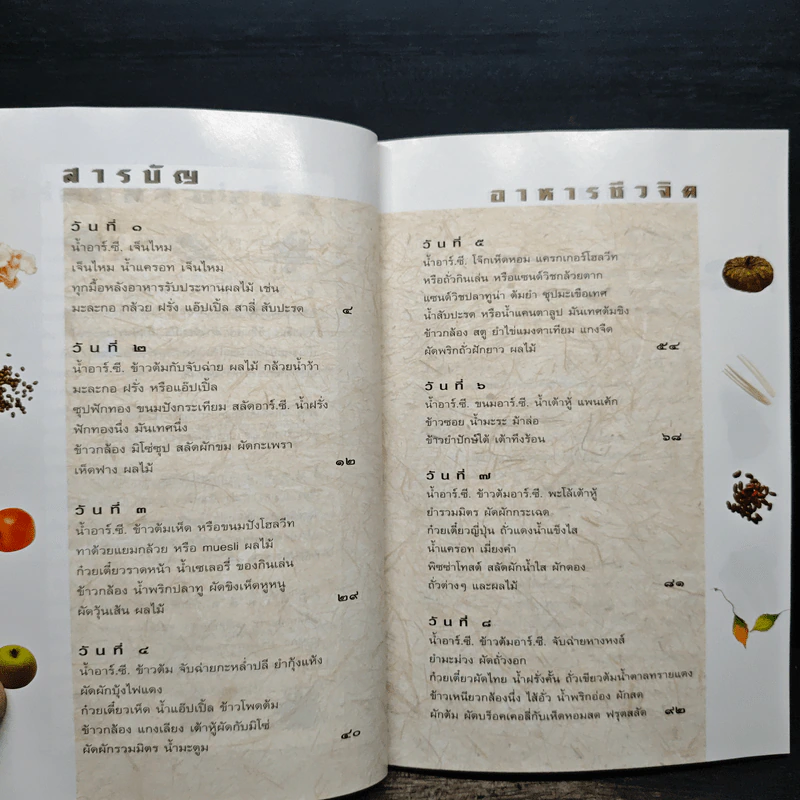 สารบัญ
วันที่ ๑
น้ำอาร์.ซี. เจ็นไหม
เจ็นไหม น้ำแครอท เจ็นไหม
ทุกมื้อหลังอาหารรับประทานผลไม้ เช่น
มะละกอ กล้วย ฝรั่ง แอ๊ปเปิ้ล สาลี่ สับปะรด ๔
วันที่ ๒
น้ำอาร์.ซี. ข้าวต้มกับจับฉ่าย ผลไม้ กล้วยน้ำว้า
มะละกอ ฝรั่ง หรือแอ๊ปเปิ้ล
ซุปฟักทอง ขนมปังกระเทียม สลัดอาร์.ซี. น้ำฝรั่ง
ฟักทองนึ่ง มันเทศนึ่ง
ข้าวกล้อง มิโซ่ซุป สลัดผักขม ผัดกะเพรา
เห็ดฟาง ผลไม้ ๑๒
วันที่ ๓
น้ำอาร์.ซี. ข้าวต้มเห็ด หรือขนมปังโฮลวีท
ทาด้วยแยมกล้วย หรือ muesli ผลไม้
ก๋วยเตี๋ยวราดหน้า น้ำเซเลอรี่ ของกินเล่น
ข้าวกล้อง น้ำพริกปลาทู ผัดขิงเห็ดหูหนู
ผัดวุ้นเส้น ผลไม้ ๒๙
วันที่ ๔
น้ำอาร์.ซี. ข้าวต้ม จับฉ่ายกะหล่ำปลี ยำกุ้งแห้ง
ผัดผักบุ้งไฟแดง
ก๋วยเตี๋ยวเห็ด น้ำแอ๊ปเปิ้ล ข้าวโพดต้ม
ข้าวกล้อง แกงเลียง เต้าหู้ผัดกับมิโซ่
ผัดผักรวมมิตร น้ำมะตูม ๔๐
อาหารชีวจิต
วันที่ ๕
น้ำอาร์.ซี. โจ๊กเห็ดหอม แครกเกอร์โฮลวีท
หรือถั่วกินเล่น หรือแซนด์วิชกล้วยตาก
แซนด์วิชปลาทูน่า ต้มยำ ซุปมะเขือเทศ
น้ำสับปะรด หรือน้ำแคนตาลูป มันเทศต้มขิง
ข้าวกล้อง สตู ยำไข่แมงดาเทียม แกงจืด
ผัดพริกถั่วฝักยาว ผลไม้ ๕๔
วันที่ ๖
น้ำอาร์.ซี. ขนมอาร์.ซี. น้ำเต้าหู้ แพนเค้ก
ข้าวซอย น้ำมะระ ม้าล่อ
ข้าวยำปักษ์ใต้ เต้าทึงร้อน ๖๘
วันที่ ๗
น้ำอาร์.ซี. ข้าวต้มอาร์.ซี. พะโล้เต้าหู้
ยำรวมมิตร ผัดผักกระเฉด
ก๋วยเตี๋ยวญี่ปุ่น ถั่วแดงน้ำแข็งไส
น้ำแครอท เมี่ยงคำ
พิซซ่าโทสต์ สลัดผักน้ำใส ผักดอง
ถั่วต่างๆ และผลไม้ ๘๑
วันที่ ๘
น้ำอาร์.ซี. ข้าวต้มอาร์.ซี. จับฉ่ายหางหงส์
ยำมะม่วง ผัดถั่วงอก
ก๋วยเตี๋ยวผัดไทย น้ำฝรั่งคั้น ถั่วเขียวต้มน้ำตาลทรายแดง
ข้าวเหนียวกล้องนึ่ง ไส้อั่ว น้ำพริกอ่อง ผักสด
ผักต้ม ผัดบร็อคเคอลี่กับเห็ดหอมสด ฟรุตสลัด ๙๒